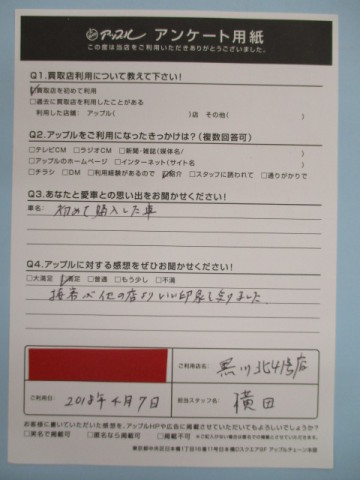 アップル アンケート用紙
この度は当店をご利用いただきありがとうございました。
Q1.買取店利用について教えて下さい!
買取店を初めて利用
□過去に買取店を利用したことがある
利用した店舗: アップル( )店 その他( )
Q2.アップルをご利用になったきっかけは?(複数回答可)
□テレビCM □ラジオCM □新聞・雑誌(媒体名/ )
□アップルのホームページ □インターネット(サイト名 )
□チラシ □DM □利用経験があるので 紹介 □スタッフに誘われて □通りがかりで
Q3.あなたと愛車との思い出をお聞かせください!
車名: 初めて購入した車
Q4.アップルに対する感想をぜひお聞かせください!
□大満足 満足 □普通 □もう少し □不満
接客が他の店よりいい印象を
ご利用店名: 黒川北4号店
ご利用日: 2018年4月7日
担当スタッフ名: 横田
お客様に書いていただいた感想を、アップルHPや広告に掲載させていただいてもよろしいでしょうか?
□実名で掲載可 □匿名なら掲載可 □掲載不可
東京都中央区日本橋1丁目16番11号日本橋Dスクエア5F アップルチェーン本部